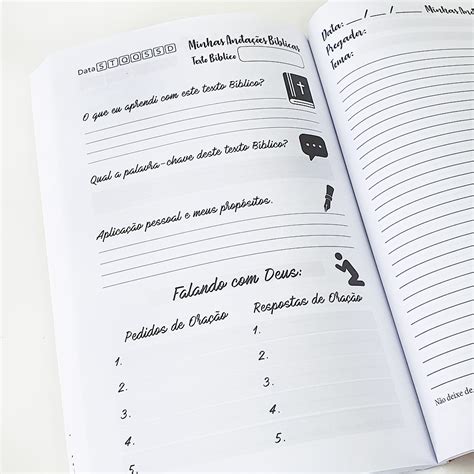 Data S T Q Q S S D
Minhas Anotações Bíblicas
Texto Bíblico
O que eu aprendi com este texto Bíblico?
Qual a palavra-chave deste texto Bíblico?
Aplicação pessoal e meus propósitos.
Falando com Deus:
Pedidos de Oração
Respostas de Oração
1.
1.
2.
2.
3.
3.
4.
4.
5.
5.
Data: __/__/__ Minhas
Pregador:
Tema:
Não deixe de